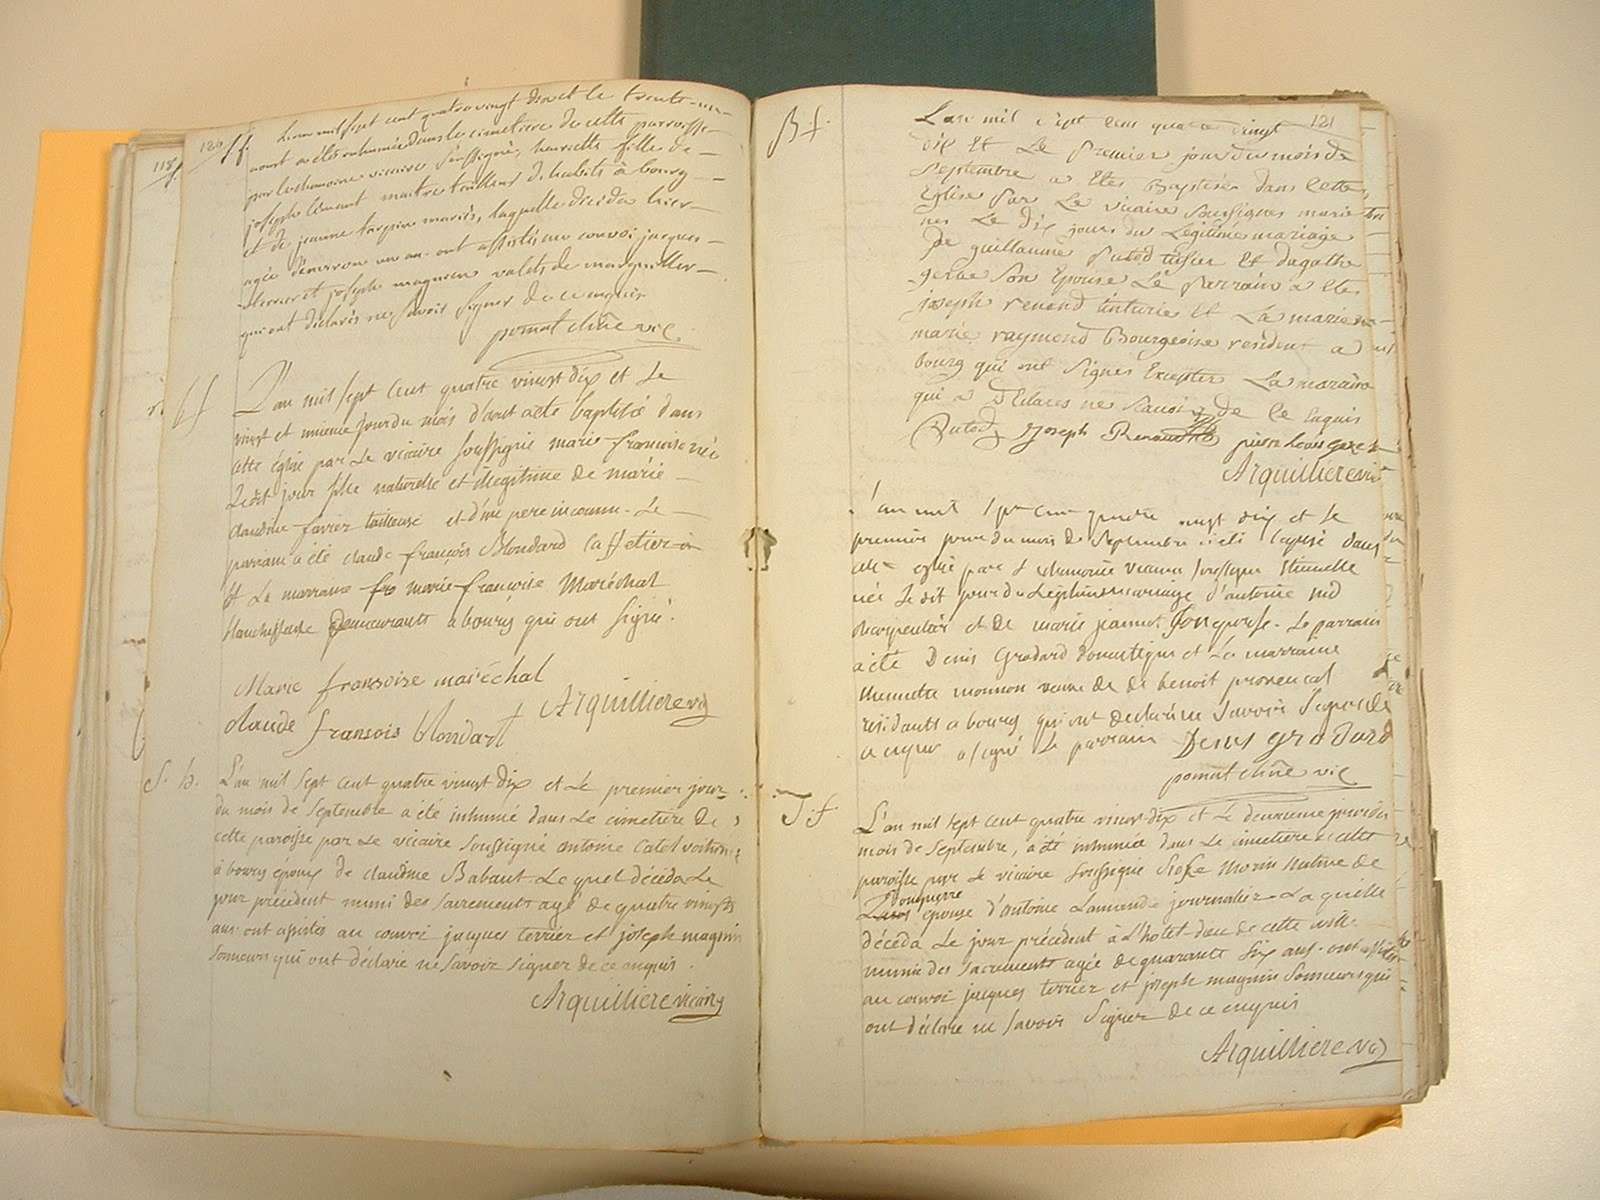 118
120
S.f.
L'an mil sept cent quatre vingt dix et le trente un
aoust a été inhumée dans le cimetiere de cette parroisse
par le chanoine vicaire soussigné, fille de
joseph maitre tailleur d'habits à bourg
et de jeanne mariés, laquelle décéda hier
agée d'environ un an. ont assistés au convoi jacques
terrier et joseph magnin valets de marguillier
qui ont déclarés ne savoir signer de ce enquis
vic
b f
L'an mil sept cent quatre vingt dix et le
vingt et unieme jour du mois d'aout a été baptisée dans
cette église par le vicaire soussigné marie françoise née
ledit jour fille naturelle et illegitime de marie
claudine favier tailleuse et d'un pere inconnu. Le
parrain a été claude françois Blondard caffetier
et La marraine marie françoise Maréchal
blanchisseuse demeurants a bourg qui ont signé.
Marie fransoise maréchal
claude fransois blondart Arquilliere
S. h.
L'an mil sept cent quatre vingt dix et le premier jour
du mois de septembre a été inhumé dans le cimetiere de
cette paroisse par le vicaire soussigné antoine catel
à bourg époux de claudine Babaut Lequel décéda le
jour précédent muni des sacrements agé de quatre vingts
ans. ont assistés au convoi jacques terrier et joseph magnin
sonneurs qui ont déclaré ne savoir signer de ce enquis.
Arquilliere vicaire
121
B. f.
L an mil sept cens quatre vingt
dix Et Le premier jour du mois de
septembre a Etes Baptisée dans cette
Eglise par Le vicaire soussignes marie
nes Le dix jours du Légitime mariage
de guillaume Putod tissier Et dagathe
son Epouse Le parrain a Etes
joseph renaud Et La maraine
marie raymond Bourgeoise resident a
bourg qui ont signes Excepter La maraine
qui a dEclares ne scavoir de Ce Enquis
Putod joseph Renaud pierre Louis
Arquilliere vic
L'an mil sept cent quatre vingt dix et le
premier jour du mois de septembre a été baptisé dans
cette eglise par le chanoine vicaire soussigné
née le dit jour du Légitime mariage d'antoine
et de marie jeannot son epouse. Le parrain
a été Denis Grodard domestique et La marraine
monnon veuve de de benoit provencal
residants a bourg qui ont declaré ne savoir signer de
ce enquis a signé le parrain Denis grodard
vic
S. f.
L'an mil sept cent quatre vingt dix et le deuxieme jour du
mois de septembre, a été inhumée dans le cimetiere de cette
paroisse par le vicaire soussigné Morin native de
epouse d'antoine Lamande journalier Laquelle
décéda Le jour précédent à L'hotel dieu de cette ville.
munie des sacrements agée de quarante six ans. ont assistés
au convoi jacques terrier et joseph magnin sonneurs qui
ont déclaré ne savoir signer de ce enquis
Arquilliere vic